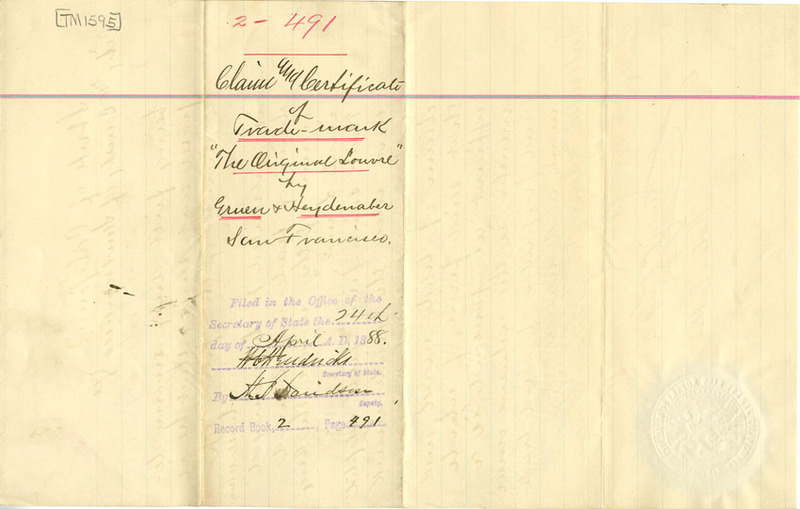 [TM1595]
2 - 491
Claim and Certificate
of
Trade-mark
"The Original Louvre"
by
Gruen & Heydenaber
San Francisco.
Filed in the Office of the
Secretary of State the 24th
day of April A.D. 1888.
Secretary of State.
By A. Davidson
Deputy.
Record Book, 2, Page 491